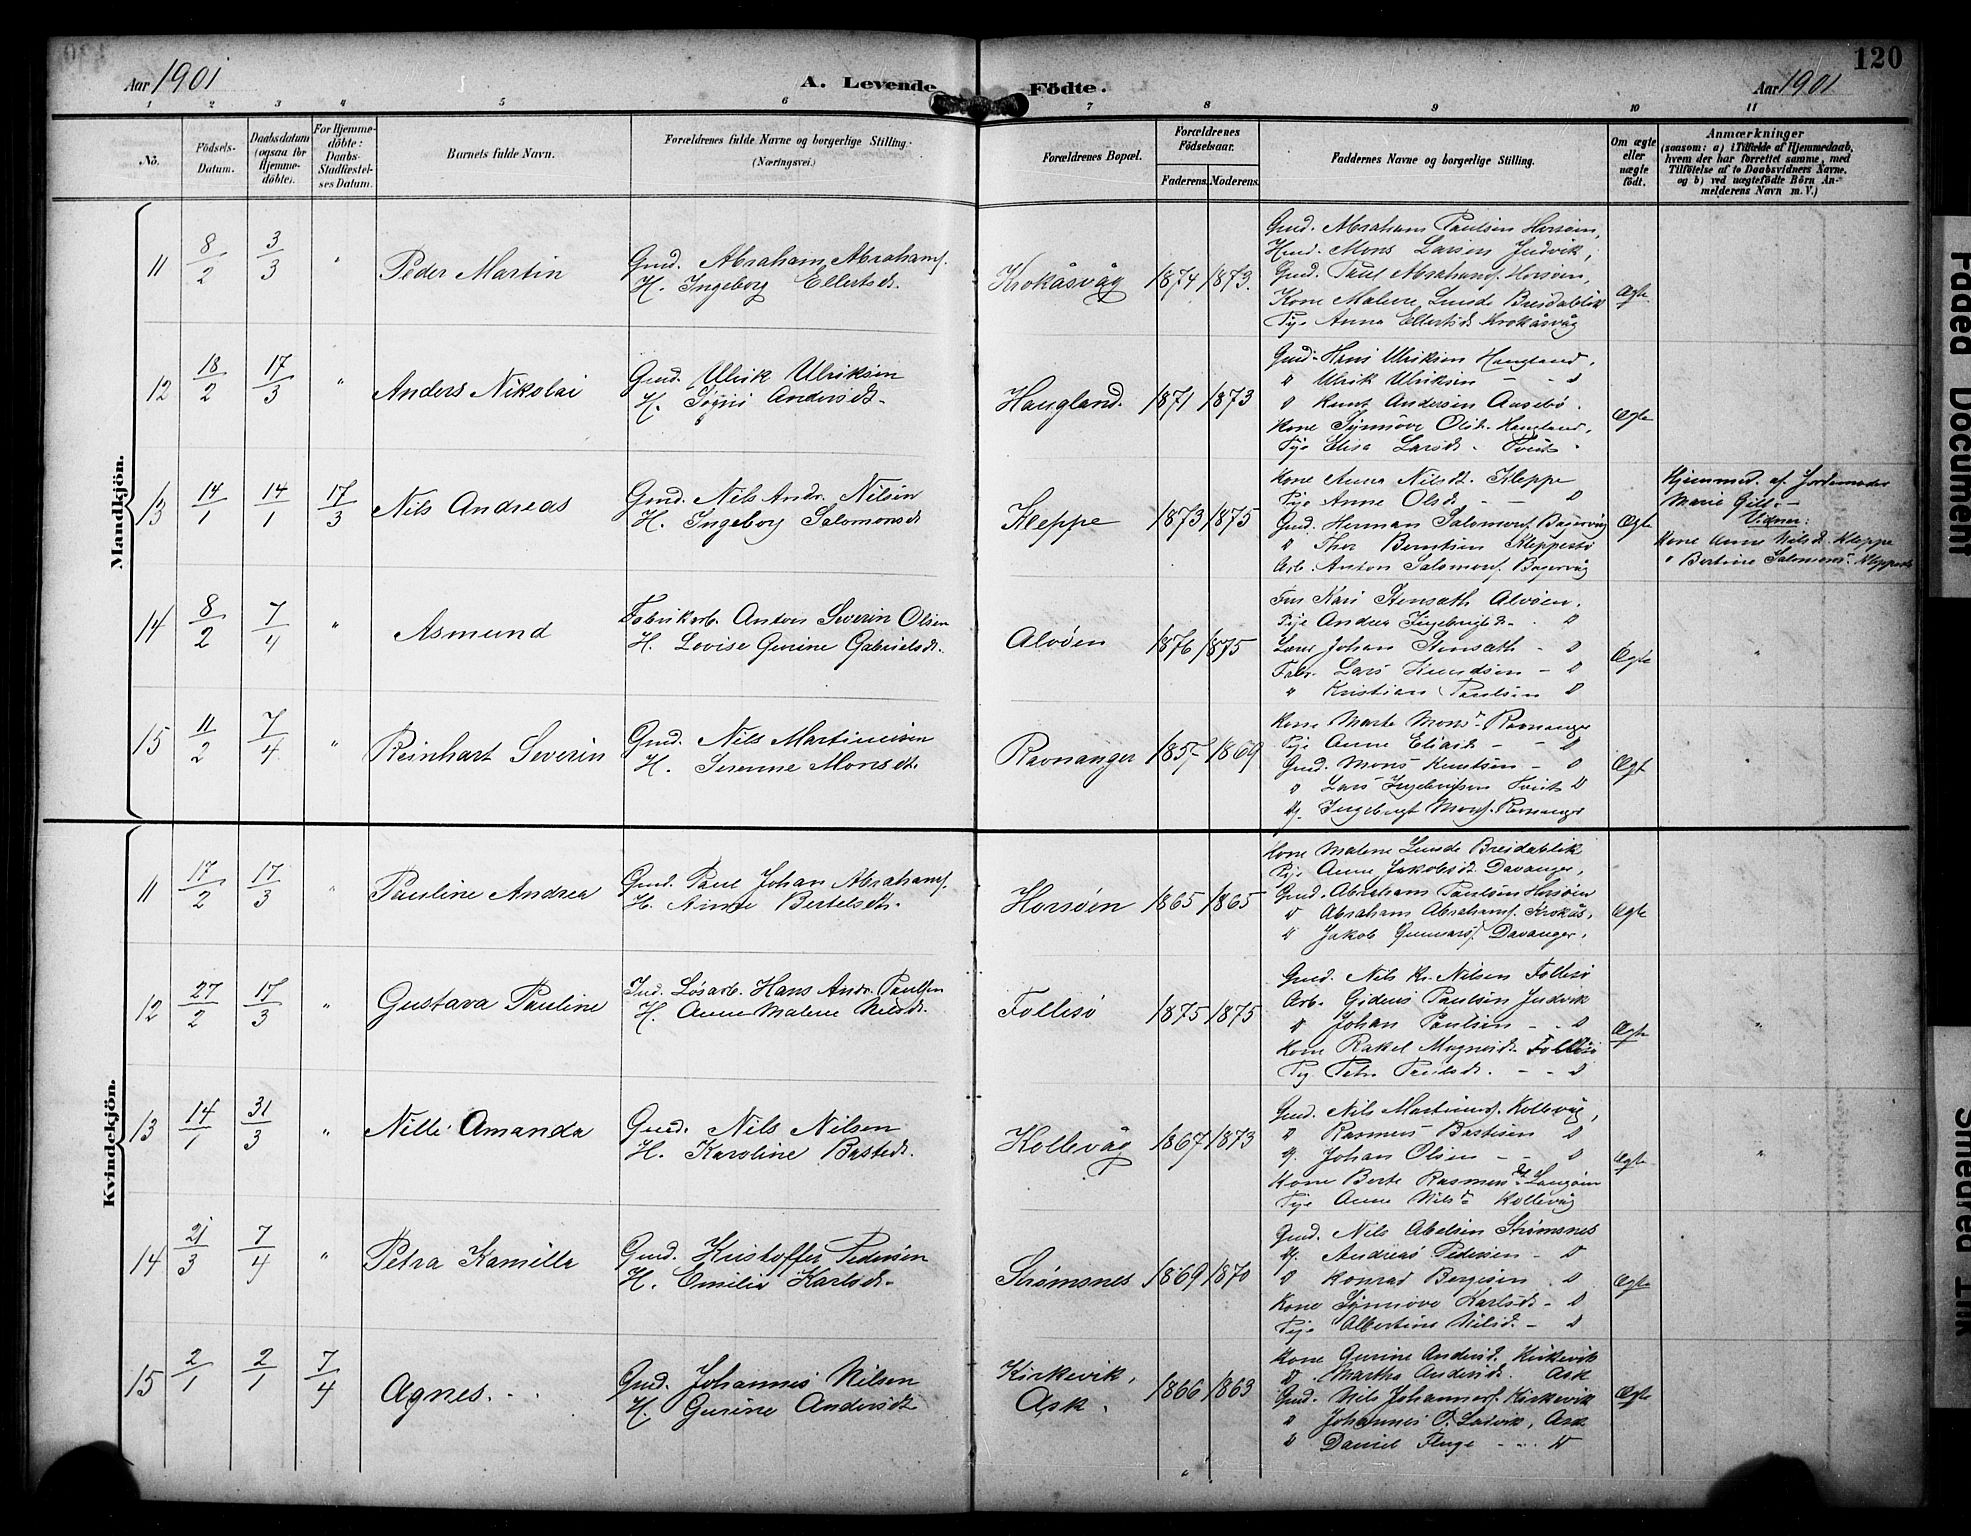 120
Aar 1901
A. Levende Födte.
Aar 1901
1 2 3 4 5 6 7 8 9 10 11
No.
Födsels-Datum.
Daabsdatum (ogsaa for Hjemme-döbte).
For Hjemme-döbte: Daabs-Stadfæstel-ses Datum.
Barnets fulde Navn.
Forældrenes fulde Navne og borgerlige Stilling. (Næringsvei.)
Forældrenes Bopæl.
Forældrenes Födselsaar.
Faderens. Moderens.
Faddernes Navne og borgerlige Stilling.
Om ægte eller uægte födt.
Anmærkninger
(saasom: a) i Tilfælde af Hjemmedaab, hvem der har forrettet samme, med Tilföielse af to Daabsvidners Navne, og b) ved uægtefödte Börn An-melderens Navn m. V.)
Mandkjön.
11 8/2 3/3 " Peder Martin
Gmd. Abraham Abrahams.
H. Ingeborg Ellertsdt.
Krokåsvåg 1874 1873.
Gmd. Abraham Paulsen Horsøen,
Hmd. Mons Larsen Judvik,
Gmd. Paul Abrahams. Horsøen,
Kone Malene Lunde Breidablik
Pige Anna Ellertsd. Krokåsvåg
Ægte
12 18/2 17/3 " Anders Nikolai
Gmd. Ulrik Ulriksen
H. Signi Andersdt.
Haugland. 1871 1873
Gmd. Hans Ulriksen Haugland,
" Ulrik Ulriksen - - D
" Knut Andersen Aasebø.
Kone Synnøve Olsdt. Haugland,
Pige Elisa Larsdt. Tveit
Ægte
13 14/1 14/1 17/3 Nils Andreas
Gmd. Nils Andr. Nilsen
H. Ingeborg Salomonsdt
Kleppe 1873 1875
Kone Anna Nilsdt. Kleppe
Pige Anne Olsd. - - D
Gmd. Herman Salomons.
" Thor Berntsen Kleppestø
Arb. Anton Salomons.
Ægte
Hjemmed. af Jordemoder
Marie
Vidner:
Kone Anne Nilsd. Kleppe
" Bertine Salomons. Kleppestø
14 8/2 7/4 " Asmund
Fabrikarb. Anton Severin Olsen
H. Lovise Gurine Gabrielsdt.
Alvøen 1876 1875
Fru Kari Stensæth Alvøen.
Pige Andrea Ingebrigtsd. D
Johan Stensæth - D
Fabr. Lars Knudsen - D
" Kristian Paulsen D
Ægte "
15 11/2 7/4 " Reinhart Severin
Gmd. Nils Martinusen
H. Serenne Monsdt.
Ravnanger 1857 1869
Kone Marte Mons. Ravnanger
Pige Anne Eliasd. - - D
Gmd. Mons Knutsen - D
" Lars Ingebrigtsen Tveit D
Ug. Ingebrigt Mons. Ravnanger
Ægt "
Kvindekjön.
11 17/2 17/3 " Pauline Andrea
Gmd. Paul Johan Abrahams.
H. Anne Bertelsdt.
Horsøen 1865 1865
Kone Malene Lunde Breidablik
Pige Anne Jakobsdt. Davanger,
Gmd. Abraham Paulsen Horsøen
" Abraham Abrahams. Krokås,
" Jakob Gunnars. Davanger,
Ægte
12 27/2 17/3 " Gustava Pauline
Ind. Løsarb. Hans Andr. Paulsen
H. Anne Malene Nilsdt.
Follesø 1875 1875
Gmd. Nils Kr. Nilsen Follesø
Arb. Gidens Paulsen Judvik
" Johan Paulsen - - D
Kone Rakel Magnesdt. Follesø
Pig. Petra - - D
Ægte "
13 14/1 31/3 " Nilli Amanda
Gmd. Nils Nilsen
H. Karoline Bastedt.
Kollevåg 1867 1873
Gmd. Nils Martinus. Kollevåg,
" Rasmus Bastisen D
Ug. Johan Olsen - - D
Kone Berte Rasmusd. Langøen
Pige Anne Nilsd. Kollevåg
Ægte "
14 21/3 7/4 " Petra Kamilla
Gmd. Kristoffer Pedersen
H. Emilie Karlsdt.
Strømsnes 1869 1870
Gmd. Nils Abelsen Strømsnes
Ug. Andreas Pedersen - D
" Konrad Bergesen . D
Kone Synnøve Karlsdt. - D
Pige Albertine Nilsd. - D
Ægte
15 2/1 2/1 7/4 Agnes.
Gmd. Johannes Nilsen
H. Gurine Andersdt.
Kirkevik, Ask. 1866 1863
Kone Gurine Andersd. Kirkevik
D. Martha Andersd. Ask
Gmd. Nils Johannes. Kirkevik
" Johannes O. Ladvik, Ask
" Daniel Fluge - - D
Ægte
Faded Document
Smeared Ink